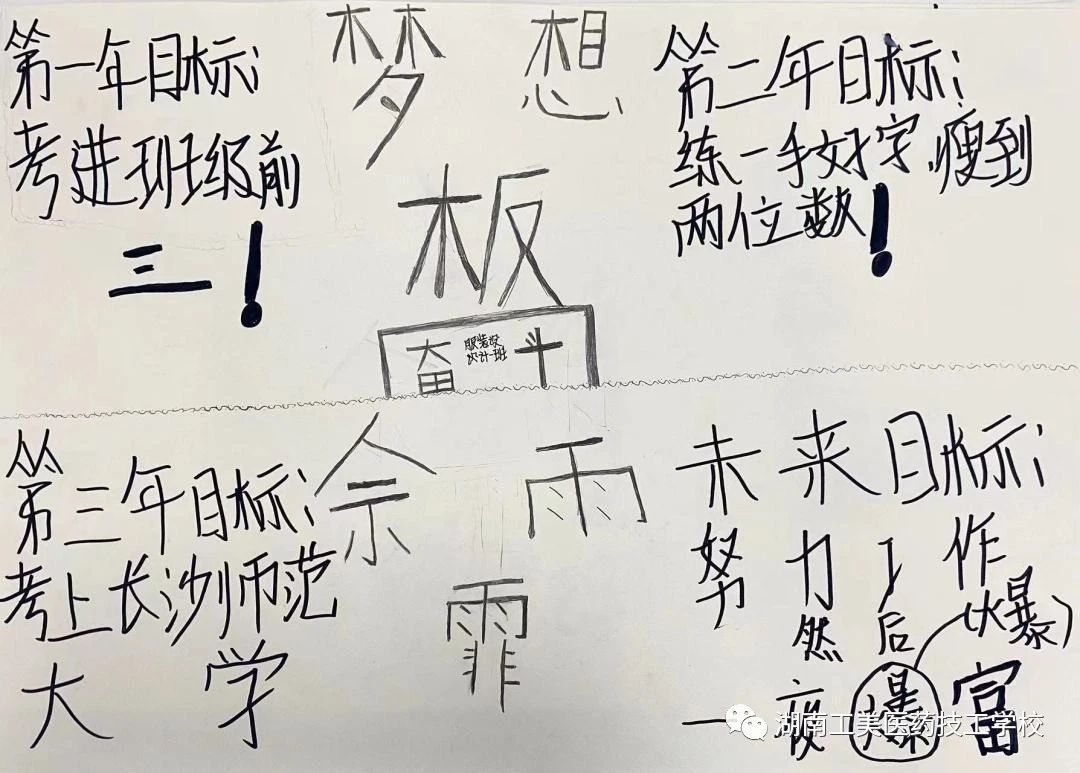 梦想
板
第一年目标:
考进班级前
三!
第二年目标:
练一手好字,瘦到
两位数!
奋 斗
服装设
计一班
第三年目标:
考上长沙师范
大学
佘雨
霏
未来目标:
努力工作
然后(爆)
一夜爆富
湖南工美医药技工学校